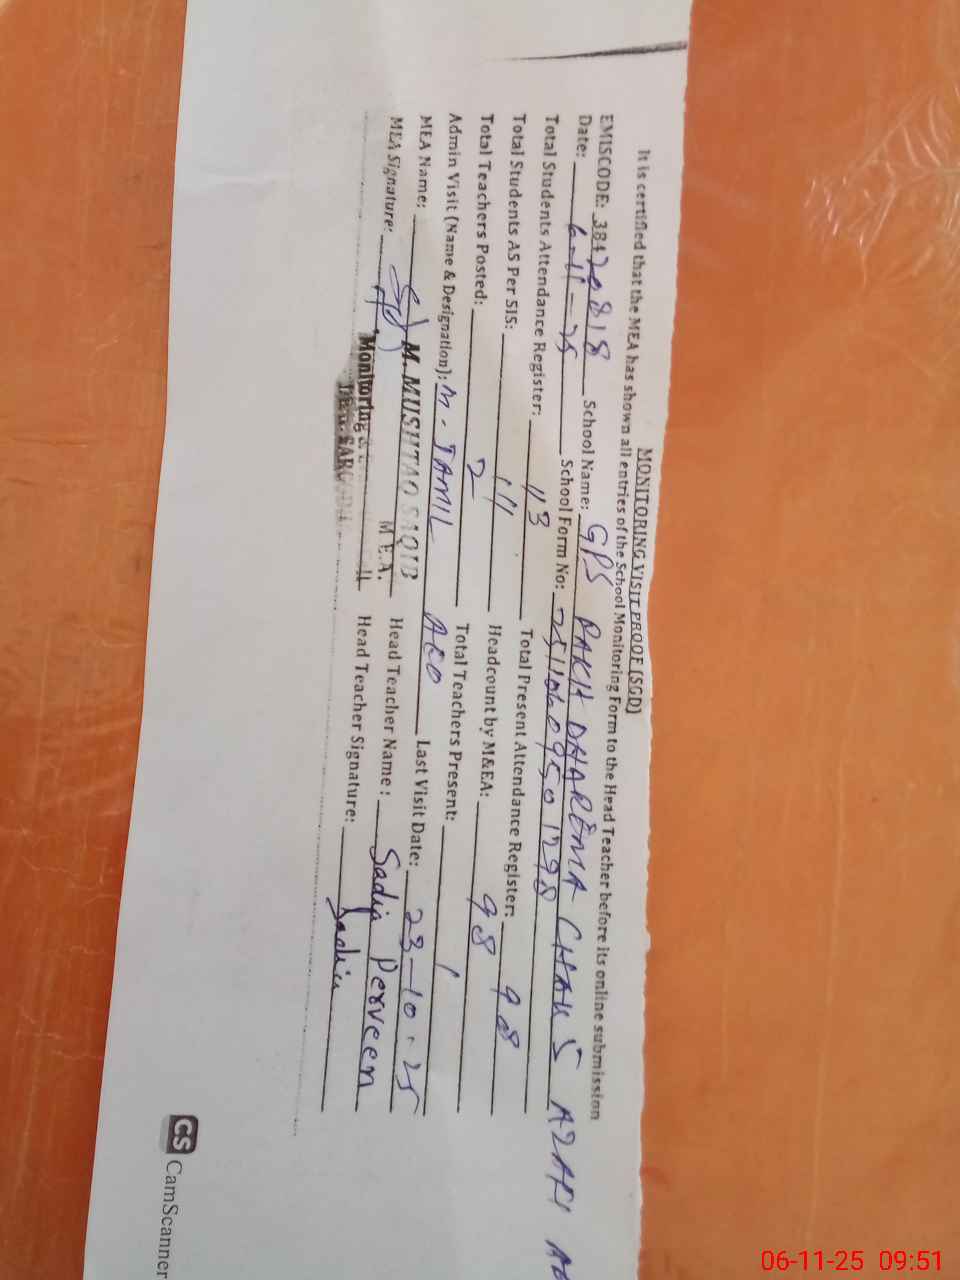 MONITORING VISIT PROOF (SGD)
It is certified that the MEA has shown all entries of the School Monitoring Form to the Head Teacher before its online submission
EMISCODE: 38420818 School Name: GPS PAKH DHAREMA CHAK 5 AZAFI
Date: 6-11-25 School Form No:
Total Students Attendance Register: 113 Total Present Attendance Register: 98
Total Students AS Per SIS: 111 Headcount by M&EA: 98
Total Teachers Posted: 2 Total Teachers Present: 1
Admin Visit (Name & Designation): M. JAMIL AEO Last Visit Date: 23-10-25
MEA Name: M. MUSHTAQ SAQIB Head Teacher Name: Sadia Perveen
M.E.A.
MEA Signature: Head Teacher Signature: Sadia
Monitoring &
CS CamScanner
06-11-25 09:51